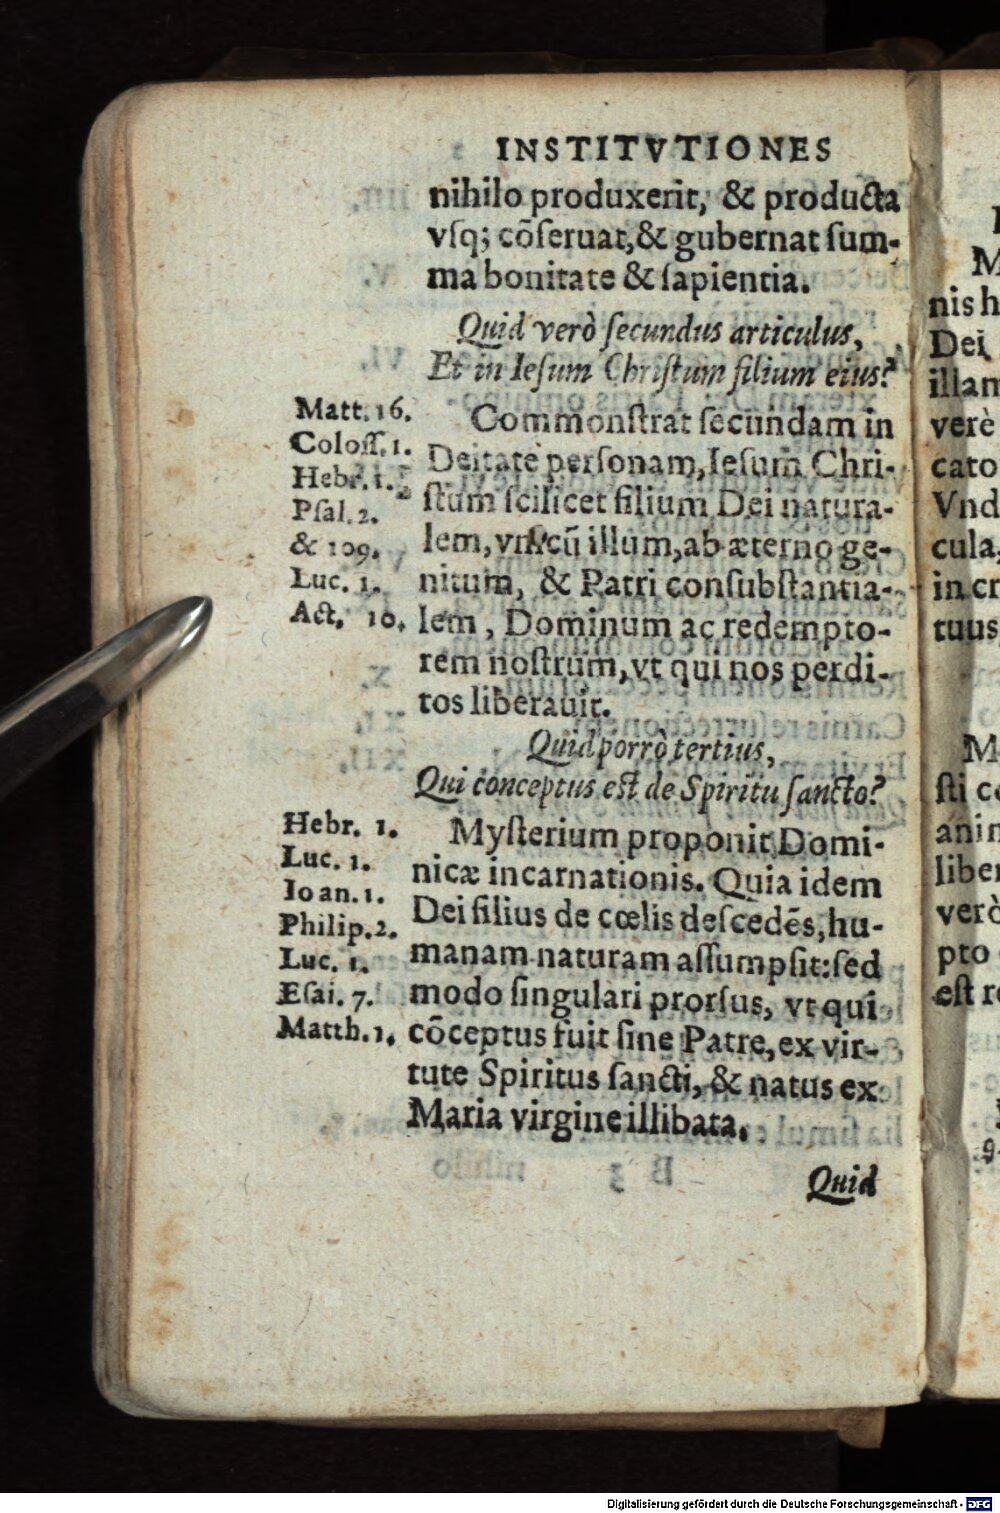 INSTITVTIONES
nihilo produxerit, & producta
vſq; cōſeruat,& gubernat ſum-
ma bonitate & ſapientia.
Quid verò ſecundus articulus,
Et in Ieſum Chriſtum filium eius?
Matt. 16.
Coloſſ. 1.
Hebr. 1.
Pſal. 2.
& 109.
Luc. 1.
Act. 10.
Commonſtrat ſecundam in
Deitate perſonam, Ieſum Chri-
ſtum ſcilicet filium Dei natura-
lem, vnicū illum, ab æterno ge-
nitum, & Patri conſubſtantia-
lem, Dominum ac redempto-
rem noſtrum, vt qui nos perdi-
tos liberauit.
Quid porrò tertius,
Qui conceptus eſt de Spiritu ſancto?
Hebr. 1.
Luc. 1.
Ioan. 1.
Philip. 2.
Luc. 1.
Eſai. 7.
Matth. 1.
Myſterium proponit Domi-
nicæ incarnationis. Quia idem
Dei filius de cœlis deſcedēs, hu-
manam naturam aſſumpſit: ſed
modo ſingulari prorſus, vt qui
cōceptus fuit ſine Patre, ex vir-
tute Spiritus ſancti, & natus ex
Maria virgine illibata.
Quid
M
nis h
Dei
illan
verè
cato
Vnd
cula,
in cr
tuus
M
ſti c
anin
liber
verò
pto
eſt r
Digitalisierung gefördert durch die Deutsche Forschungsgemeinschaft - DFG